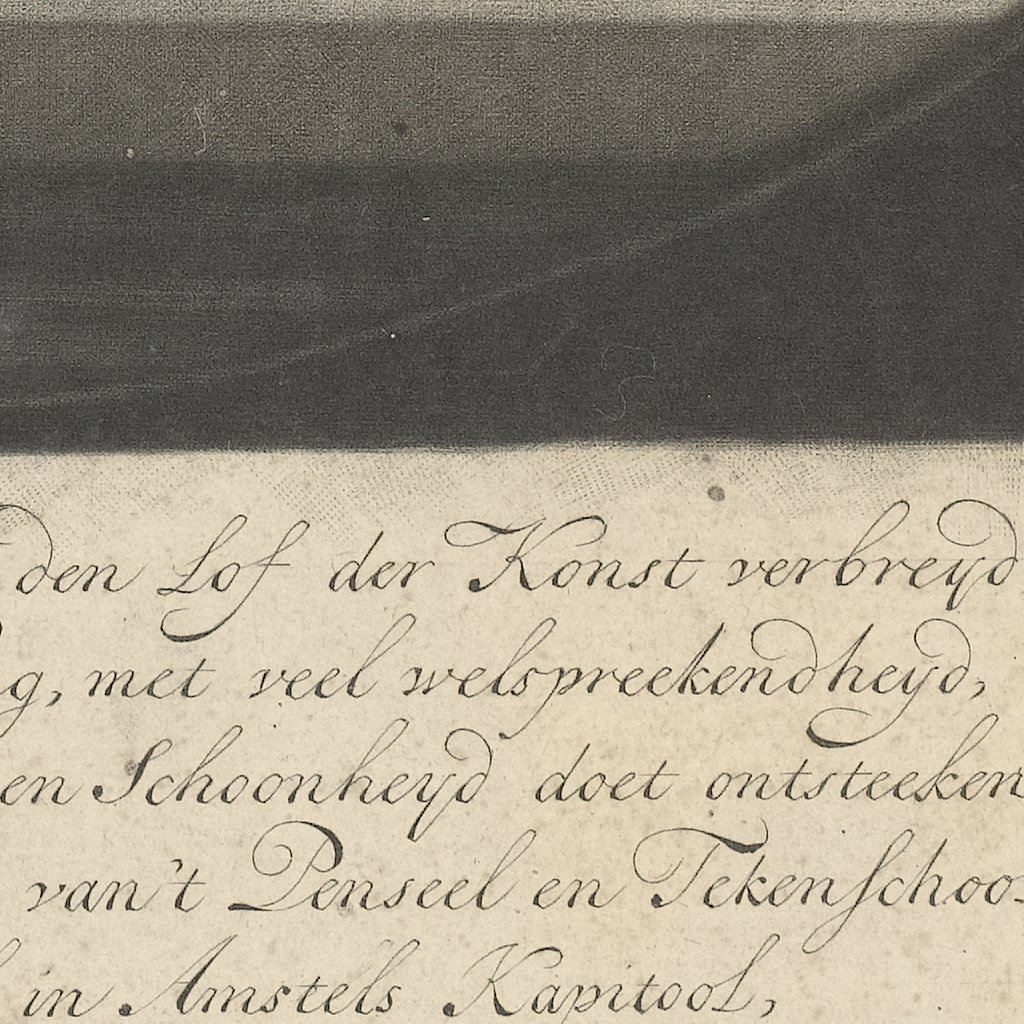 den Lof der Konst verbreyd
g, met veel welspreekendheyd,
en Schoonheyd doet ontsteeken
van't Penseel en Tekenschoo
in Amstels Kapitool,